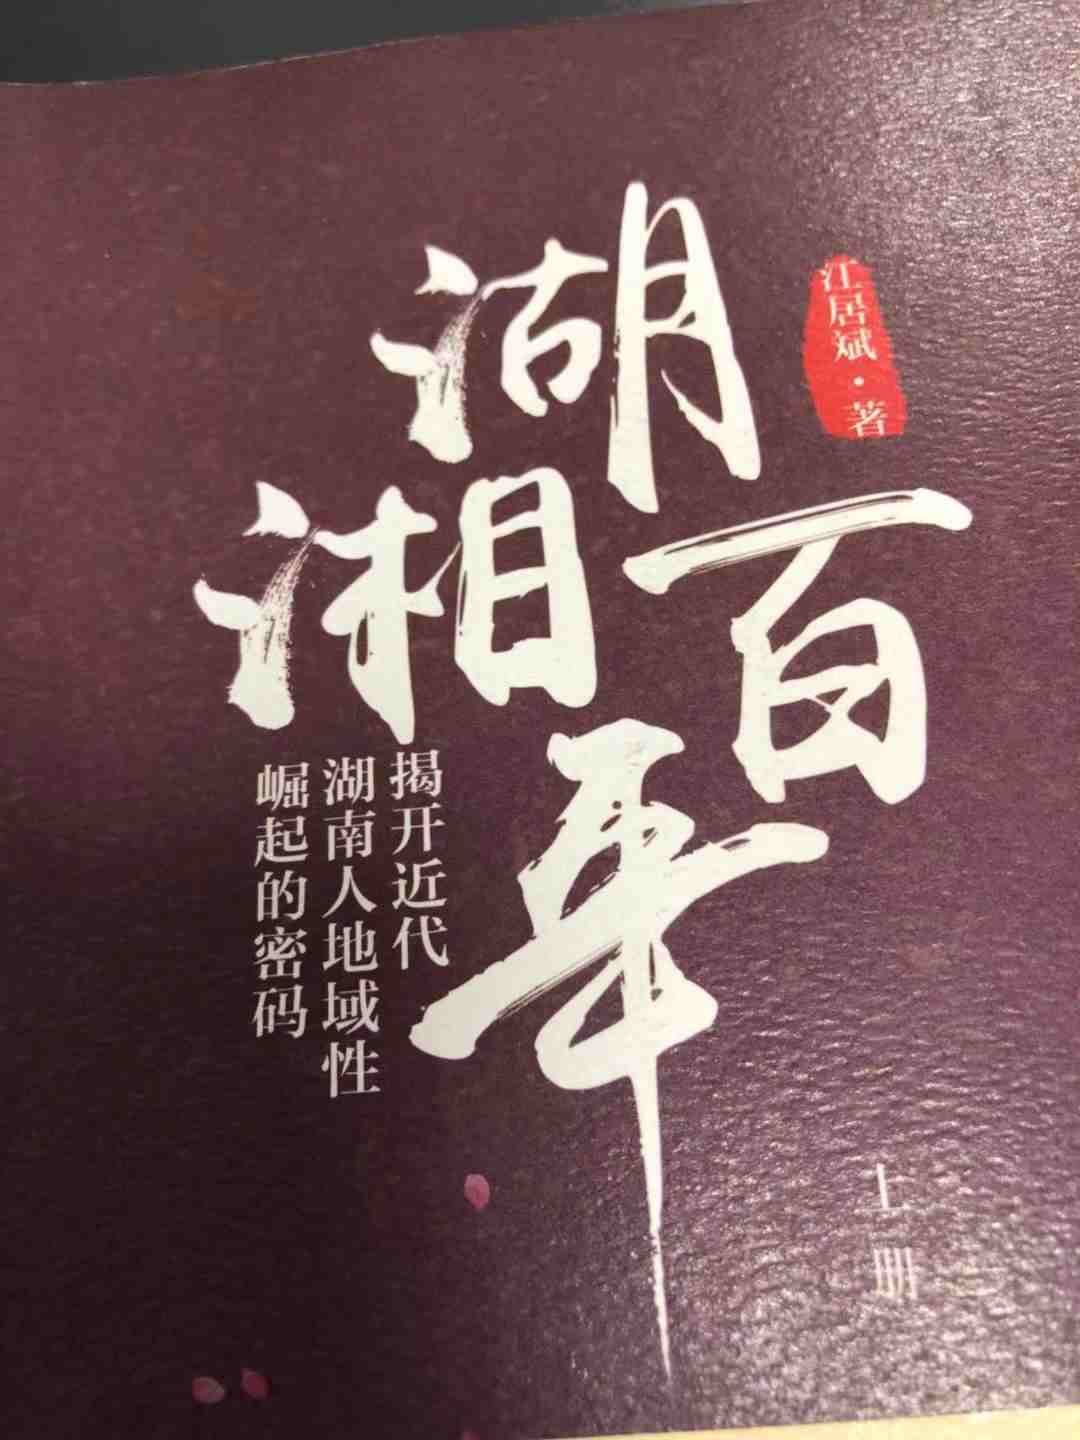 湖湘百年
江居斌·著
揭开近代
湖南人地域性
崛起的密码
上册